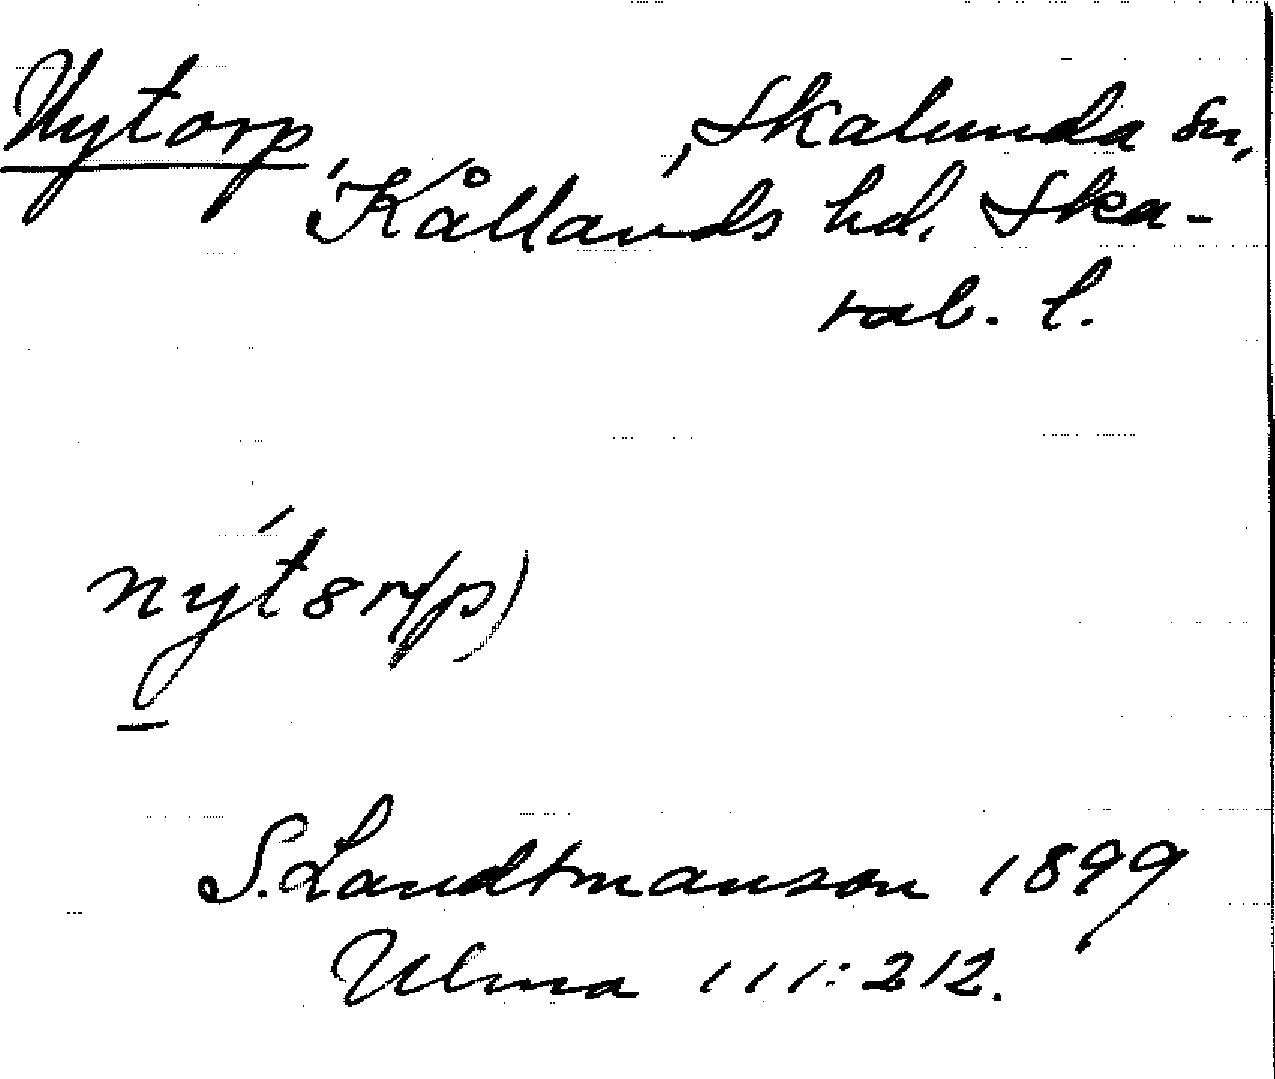 Nytorp, Skalunda sn,
Kållands hd. Ska-
rab. l.
nýt8r/p)
S. Landtmanson 1899
Ulma 111:212.